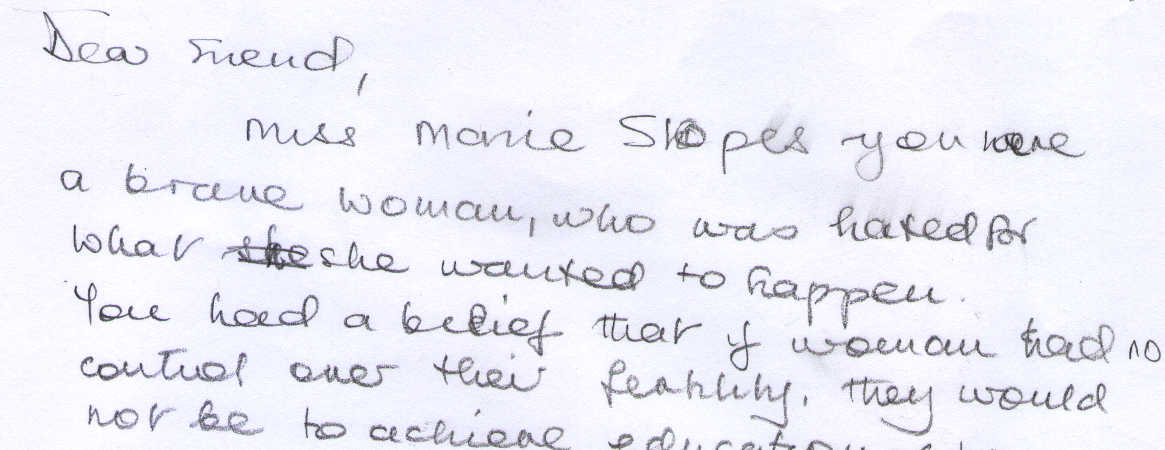 Dear Friend,
Miss Marie Stopes you were
a brave woman, who was hated for
what she she wanted to happen.
You had a belief that if woman had no
control over their fertility. They would
not be to achieve education